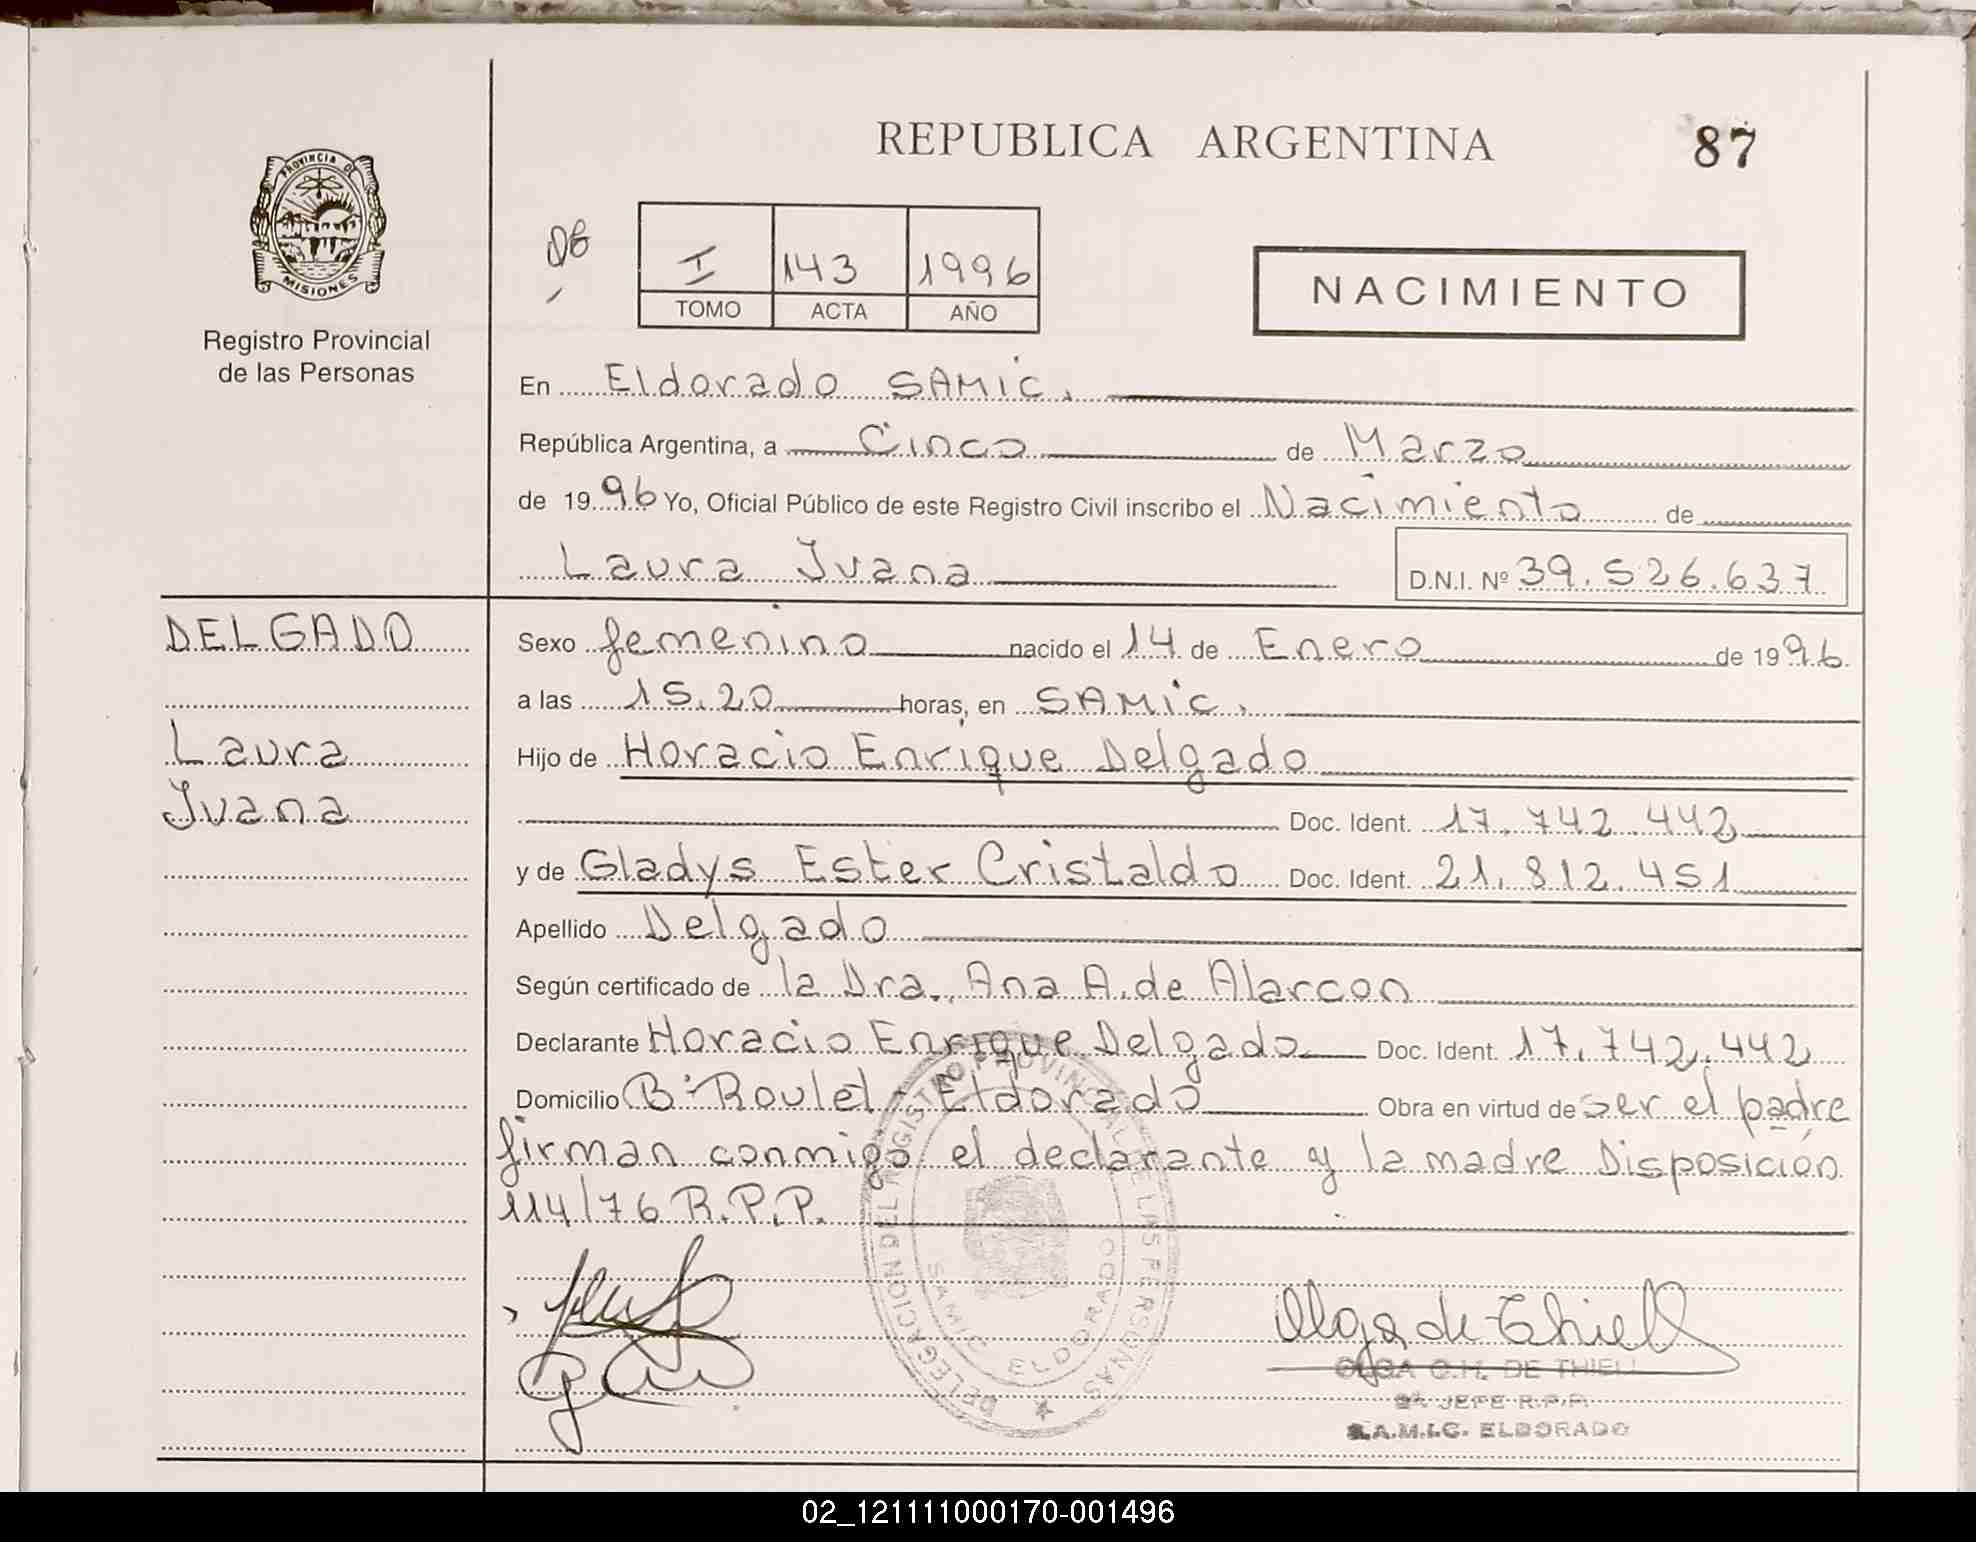 REPUBLICA ARGENTINA
87
PROVINCIA DE
MISIONES
Registro Provincial
de las Personas
I 143 1996
TOMO ACTA AÑO
NACIMIENTO
En Eldorado SAMIC.
República Argentina, a Cinco de Marzo
de 1996 Yo, Oficial Público de este Registro Civil inscribo el Nacimiento de
Laura Ivana D.N.I. Nº 39.526.637
DELGADO
Laura
Ivana
Sexo femenino nacido el 14 de Enero de 1996
a las 15.20 horas, en SAMIC,
Hijo de Horacio Enrique Delgado
Doc. Ident. 17.742.442
y de Gladys Ester Cristaldo Doc. Ident. 21.812.451
Apellido Delgado
Según certificado de la Dra. Ana A. de Alarcon
Declarante Horacio Enrique Delgado Doc. Ident. 17.742.442
Domicilio Bº Roulet - Eldorado Obra en virtud de ser el padre
firman conmigo el declarante y la madre Disposición
114/76 R.P.P.
DELEGACION DEL REGISTRO PROVINCIAL DE LAS PERSONAS
SAMIC ELDORADO
Olga de Thiell
OLGA C.H. DE THIELL
JEFE R.P.P.
S.A.M.I.C. ELDORADO
02_121111000170-001496